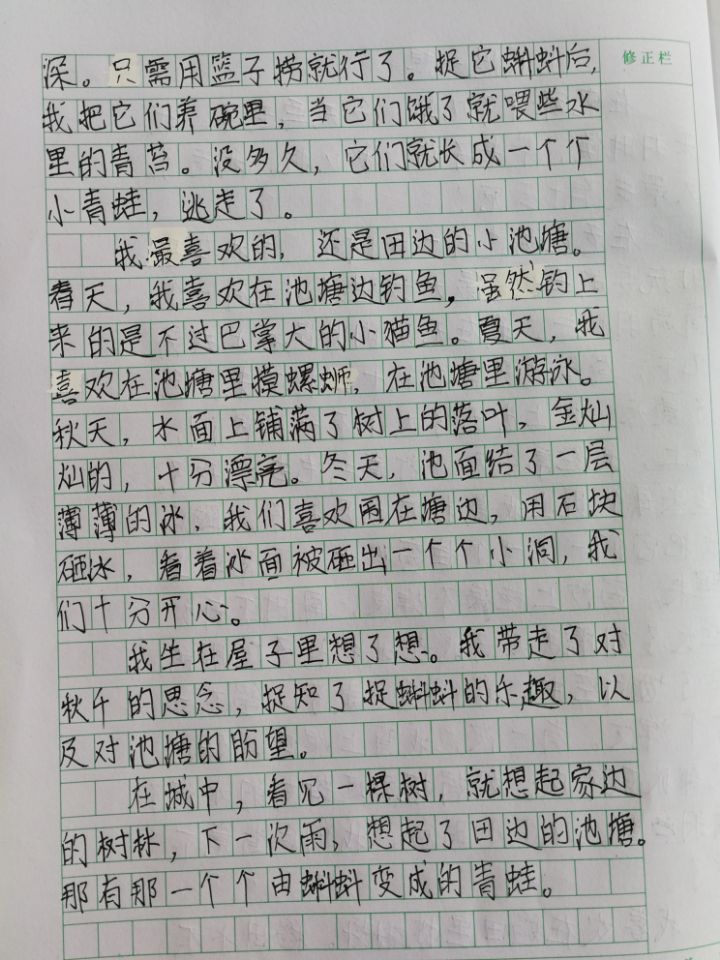 修正栏
深。只需用篮子捞就行了。捉它蝌蚪后,
我把它们养碗里,当它们饿了就喂些水
里的青苔。没多久,它们就长成一个个
小青蛙,逃走了。
我最喜欢的,还是田边的小池塘。
春天,我喜欢在池塘边钓鱼,虽然钓上
来的是不过巴掌大的小猫鱼。夏天,我
喜欢在池塘里摸螺蛳,在池塘里游泳。
秋天,水面上铺满了树上的落叶,金灿
灿的,十分漂亮。冬天,池面结了一层
薄薄的冰,我们喜欢围在塘边,用石块
砸冰,看着冰面被砸出一个个小洞,我
们十分开心。
我坐在屋子里想了想。我带走了对
秋千的思念,捉知了捉蝌蚪的乐趣,以
及对池塘的盼望。
在城中,看见一棵树,就想起家边
的树林,下一次雨,想起了田边的池塘。
那有那一个个由蝌蚪变成的青蛙。